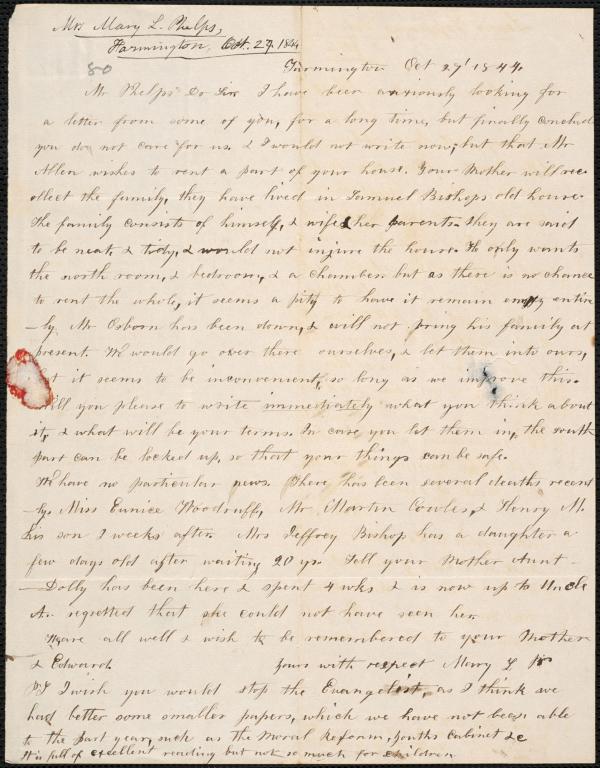 Mrs Mary L. Phelps,
Farmington, Oct. 27. 1844
80
Farmington Oct 27' 1844.
Mr Phelps Dr Sir I have been anxiously looking for
a letter from some of you, for a long time, but finally conclude
you do not care for us. & I would not write now, but that Mr
Allen wishes to rent a part of your house. Your Mother will rec-
ollect the family, they have lived in Samuel Bishops old house
The family consists of himself, & wife & her parents. They are said
to be neat, & tidy, & would not injure the house. He only wants
the north room, & bedroom, & a chamber. but as there is no chance
to rent the whole, it seems a pity to have it remain empty entire
-ly. Mr Osborn has been down, & will not bring his family at
present. We would go over there ourselves, & let them into ours,
it seems to be inconvenient, so long as we improve this.
Will you please to write immediately what you think about
it, & what will be your terms. In case you let them in, the south
part can be locked up, so that your things can be safe.
We have no particular news. There has been several deaths recent
-ly. Miss Eunice Woodruff, Mr Martin Cowles, & Henry M.
his son 2 weeks after. Mrs Jeffrey Bishop has a daughter a
few days old after waiting 20 yrs. Tell your Mother Aunt -
- Dolly has been here & spent 4 wks & is now up to Uncle
A. regretted that she could not have seen her.
We are all well & wish to be remembered to your Mother
& Edward Yours with respect Mary L
PS I wish you would stop the Evangelist, as I think we
had better some smaller papers, which we have not been able
to the past year, such as the Moral Reform, Youths Cabinet &c
It is full of excellent reading but not so much for children